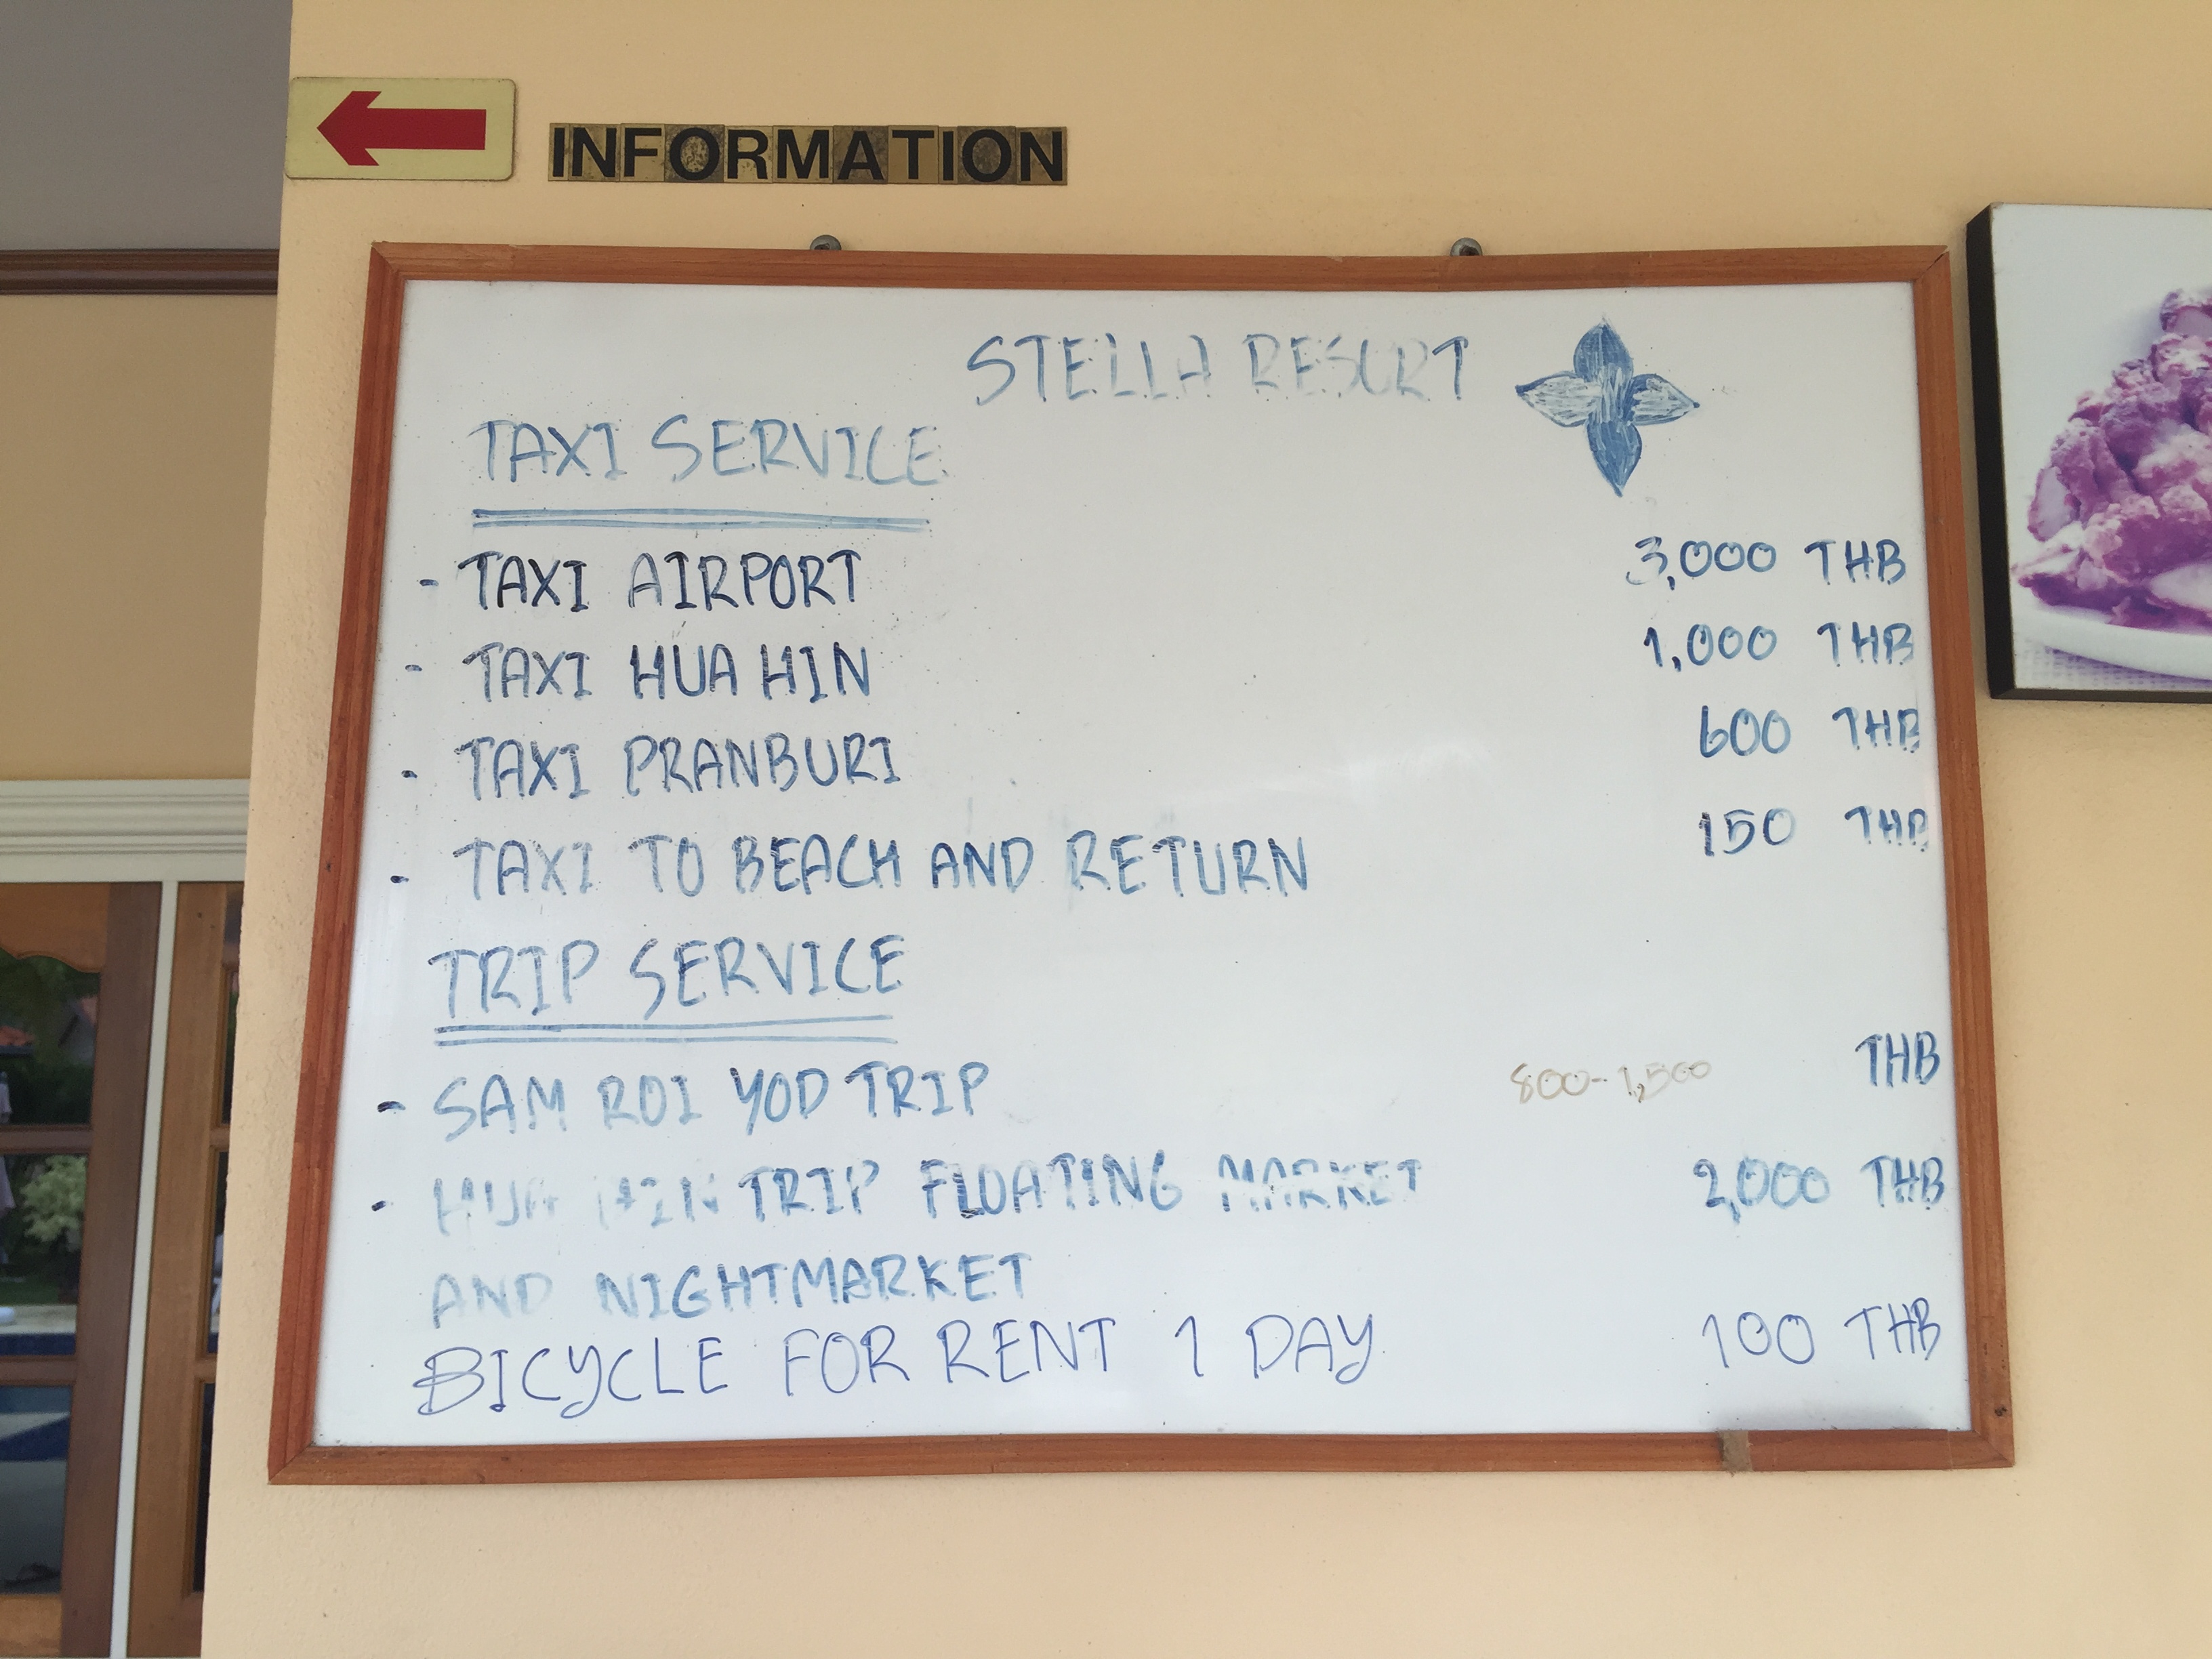 INFORMATION
STELLA RESORT
TAXI SERVICE
- TAXI AIRPORT 3,000 THB
- TAXI HUA HIN 1,000 THB
- TAXI PRANBURI 600 THB
- TAXI TO BEACH AND RETURN 150 THB
TRIP SERVICE
- SAM ROI YOD TRIP 800-1,500 THB
- HUA HIN TRIP FLOATING MARKET 2,000 THB
AND NIGHTMARKET
BICYCLE FOR RENT 1 DAY 100 THB